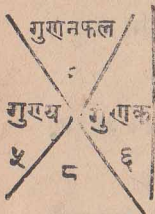 गुणनफल
गुण्य गुणक
५ ८ ६